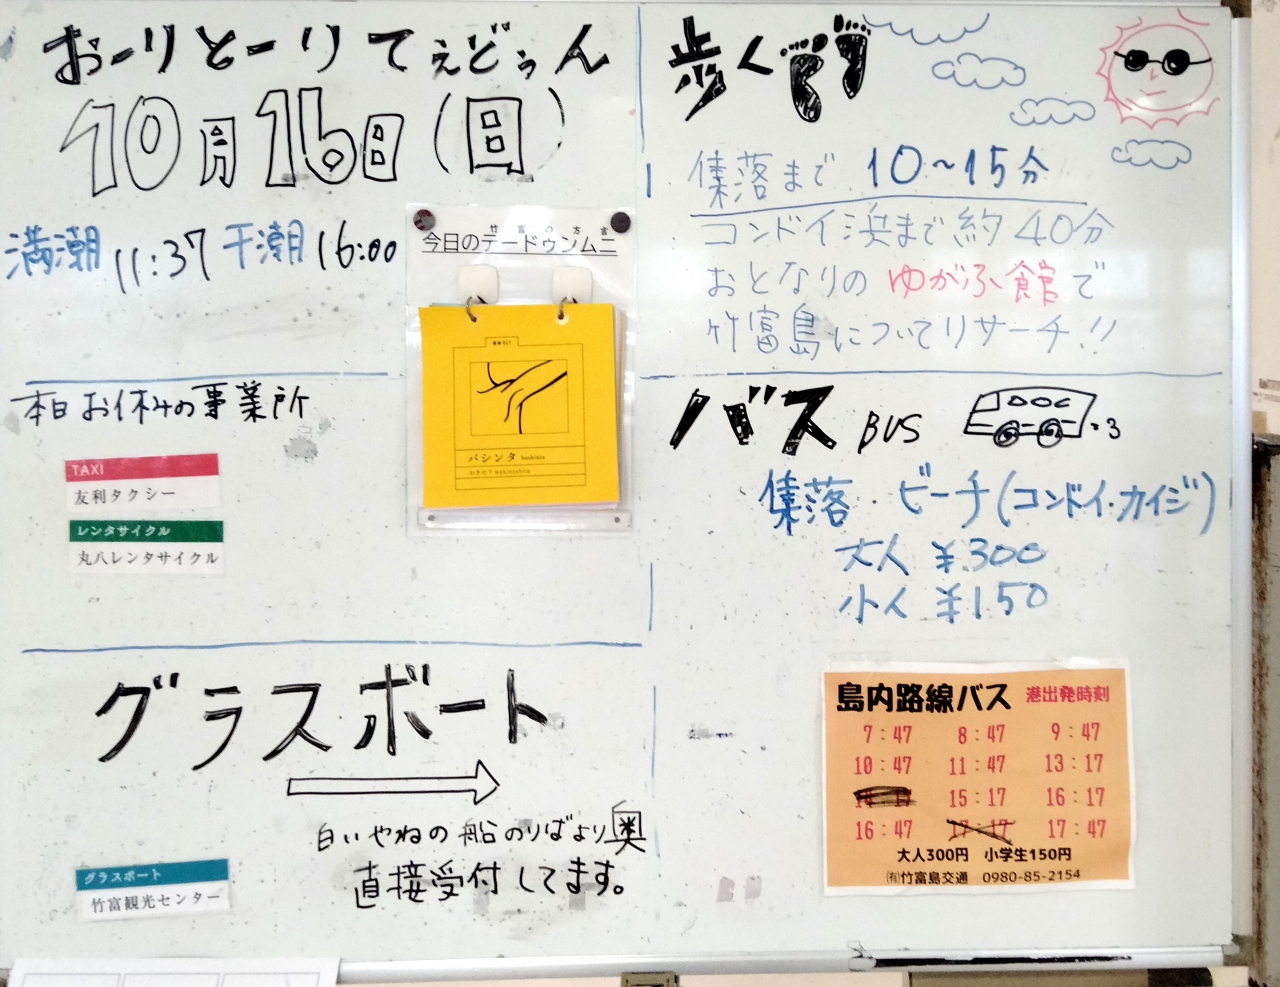 おーりとーりてぇどぅん
10月16日(日)
満潮 11:37 干潮 16:00
竹富の方言
今日のテードゥンムニ
バシンタ bashinta
わきの下 wakinoshita
本日お休みの事業所
TAXI
友利タクシー
レンタサイクル
丸八レンタサイクル
グラスボート
白いやねの船のりばより奥
直接受付してます。
グラスボート
竹富観光センター
歩くです
集落まで 10~15分
コンドイ浜まで約40分
おとなりのゆがふ館で
竹富島についてリサーチ!!
バス BUS
集落・ビーチ(コンドイ・カイジ)
大人 ¥300
小人 ¥150
島内路線バス 港出発時刻
7:47 8:47 9:47
10:47 11:47 13:17
15:17 16:17
16:47 17:17 17:47
大人300円 小学生150円
㈲竹富島交通 0980-85-2154